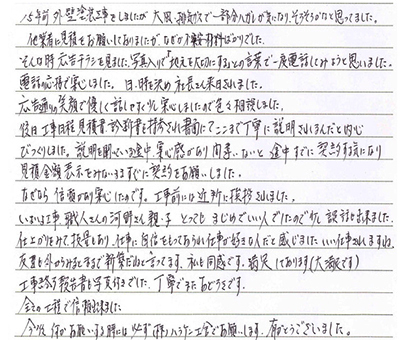 15年前 外壁塗装工事をしましたが 大雨、台風で一部分ハガレが気になり、そろそろかなと思ってました。
他業者に見積をお願いしておりましたが なぜか不 ばかりでした。
そんな時 広告チラシを見ました。写真入りで「地元を大切にする」との言葉で一度電話してみようと思いました。
電話の応待で安心しました。日、時を決め 社長さん来日されました。
広告通りの笑顔で優しく話して下さり安心しましたので色々相談しました。
後日 工事日程、見積書、診断書を持参され書面にてここまで丁寧に説明されるんだと内心
びっくりしました。説明を聞いている途中 安心感があり 間違いないと 途中ですでに契約する気になり
見積金額表示をみないうちにすぐに契約をお願いしました。
なぜなら 信頼があり安心したのです。工事前には近所に挨拶されました。
いよいよ工事 職人さんの河野さん親子 とってもまじめでいい人でしたので 談話も出来ました。
仕上がりをみて 技量もあり、仕事に自信をもってあり 仕事が好きな人だと感じました。いい仕事されますね。
友達も外から みてまるで新築だねと言ってます。私も同感です。満足しております(大満足です)
工事終了報告書も写真付きでした。丁寧でありがとうです。
全ての工程で信頼出来ました。
今後、何かお願いする際には 必ず 工舎でお願いします。有がとうございました。